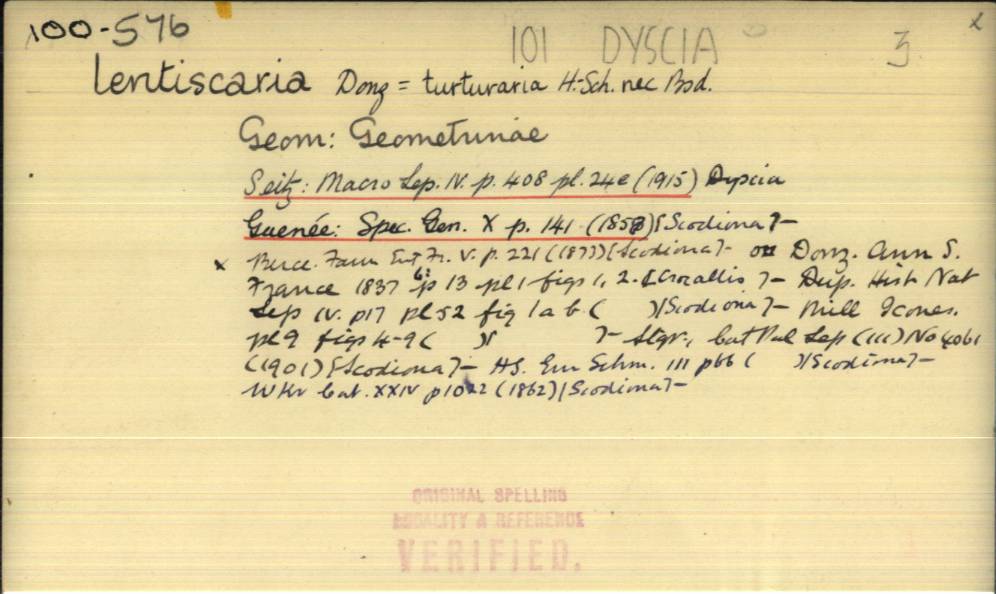 100-576 101 DYSCIA 3 x
lentiscaria Donz = turturaria H-Sch. nec Bsd.
Geom: Geometrinae
Seitz: Macro Lep. IV. p. 408 pl. 24e (1915) Dyscia
Guenée: Spec. Gen. X p. 141 (1858) [Scodiona] -
x Berce. Faun Ent Fr. V. p. 221 (1873) [Scodiona] - Donz. Ann S.
France 1837 p 13 pl 1 figs 1, 2. [Crocallis] - Dup. Hist Nat
Lep IV. p17 pl 52 fig 1a b ( ) [Scodiona] - Mill Icones.
pl 9 figs 4-9 ( ) [ ] - Stgr, Cat Pal Lep (III) No 4061
(1901) [Scodiona] - HS. Eur Schm. III p66 ( ) [Scodiona] -
Wkr Cat. XXIV p1022 (1862) [Scodiona] -
ORIGINAL SPELLING
LOCALITY & REFERENCE
VERIFIED.